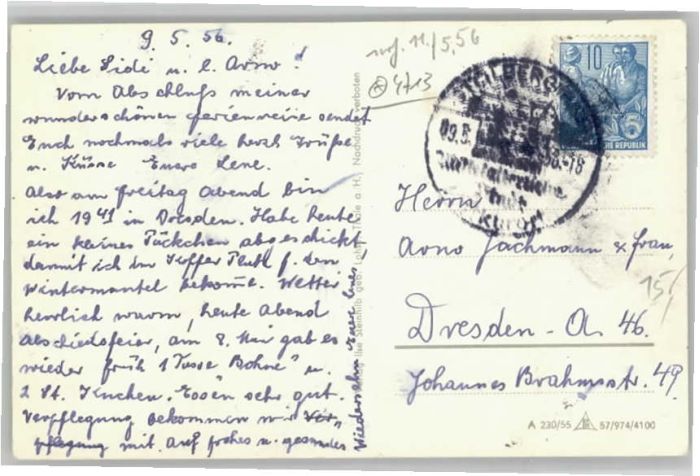 9. 5. 56.
Liebe Sidi u. l. Arno!
Vom Abschluß meiner
wunderschönen Ferienreise sendet
Euch nochmals viele herzl. Grüße
u. Küsse Eure Lene.
Also am Freitag Abend bin
ich 19 41 in Dresden. Habe heute
ein kleines Päckchen abgeschickt
damit ich im Koffer Platz f. den
Wintermantel bekomme. Wetter
herrlich warm, heute Abend
Abschiedsfeier, am 8. Mai gab es
wieder früh 1 Tasse "Bohne" u.
2 St. Kuchen. Essen sehr gut.
Verpflegung bekommen wir
mit. Auf frohes u. gesundes
Wiedersehn Eure Lene
Thale a. H.) Nachdruck verboten
11/5,56
4713
STOLBERG
09.5
-18
Kurort
10
5
REPUBLIK
Herrn
Arno Jachmann & Frau,
15/
Dresden-A 46.
Johannes Brahmsstr. 49
A 230/55 57/974/4100